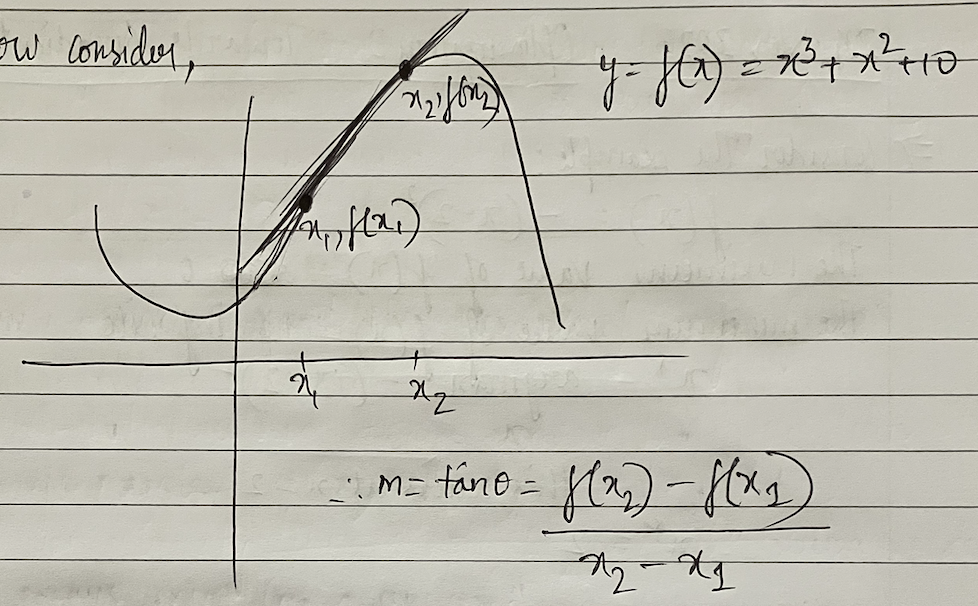 ow consider,
y = f(x) = x³ + x² + 10
x₂, f(x₂)
x₁, f(x₁)
x₁
x₂
∴ m = tanθ = f(x₂) - f(x₁)
x₂ - x₁